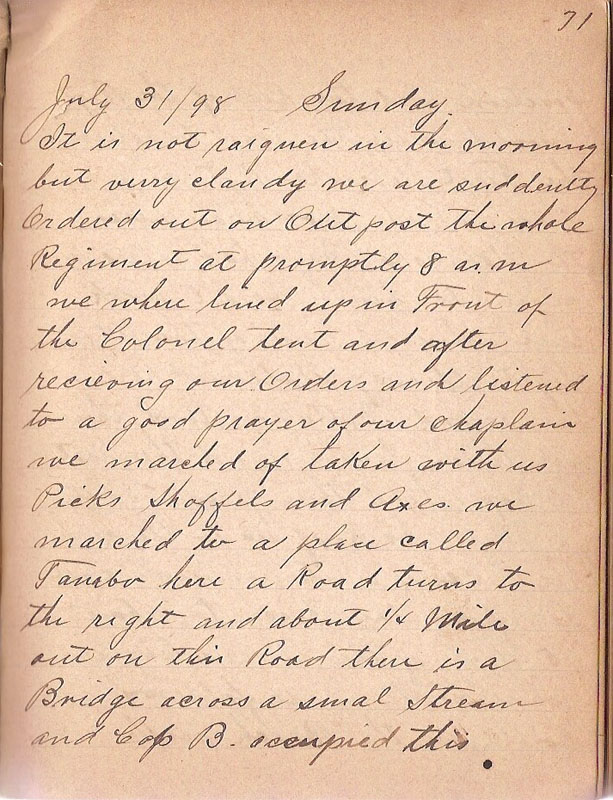 71
July 31/98 Sunday.
It is not raignen in the morning
but verry claudy we are suddently
Ordered out on Out post the whole
Regiment at promptly 8 a.m
we where lined up in Front of
the Colonel tent and after
recieving our Orders and listened
to a good prayer of our chaplain
we marched of taken with us
Picks Shoffels and Axes. we
marched to a place called
here a Road turns to
the right and about 1/4 Mile
out on this Road there is a
Bridge across a smal Stream
and Cop B. occupied this.